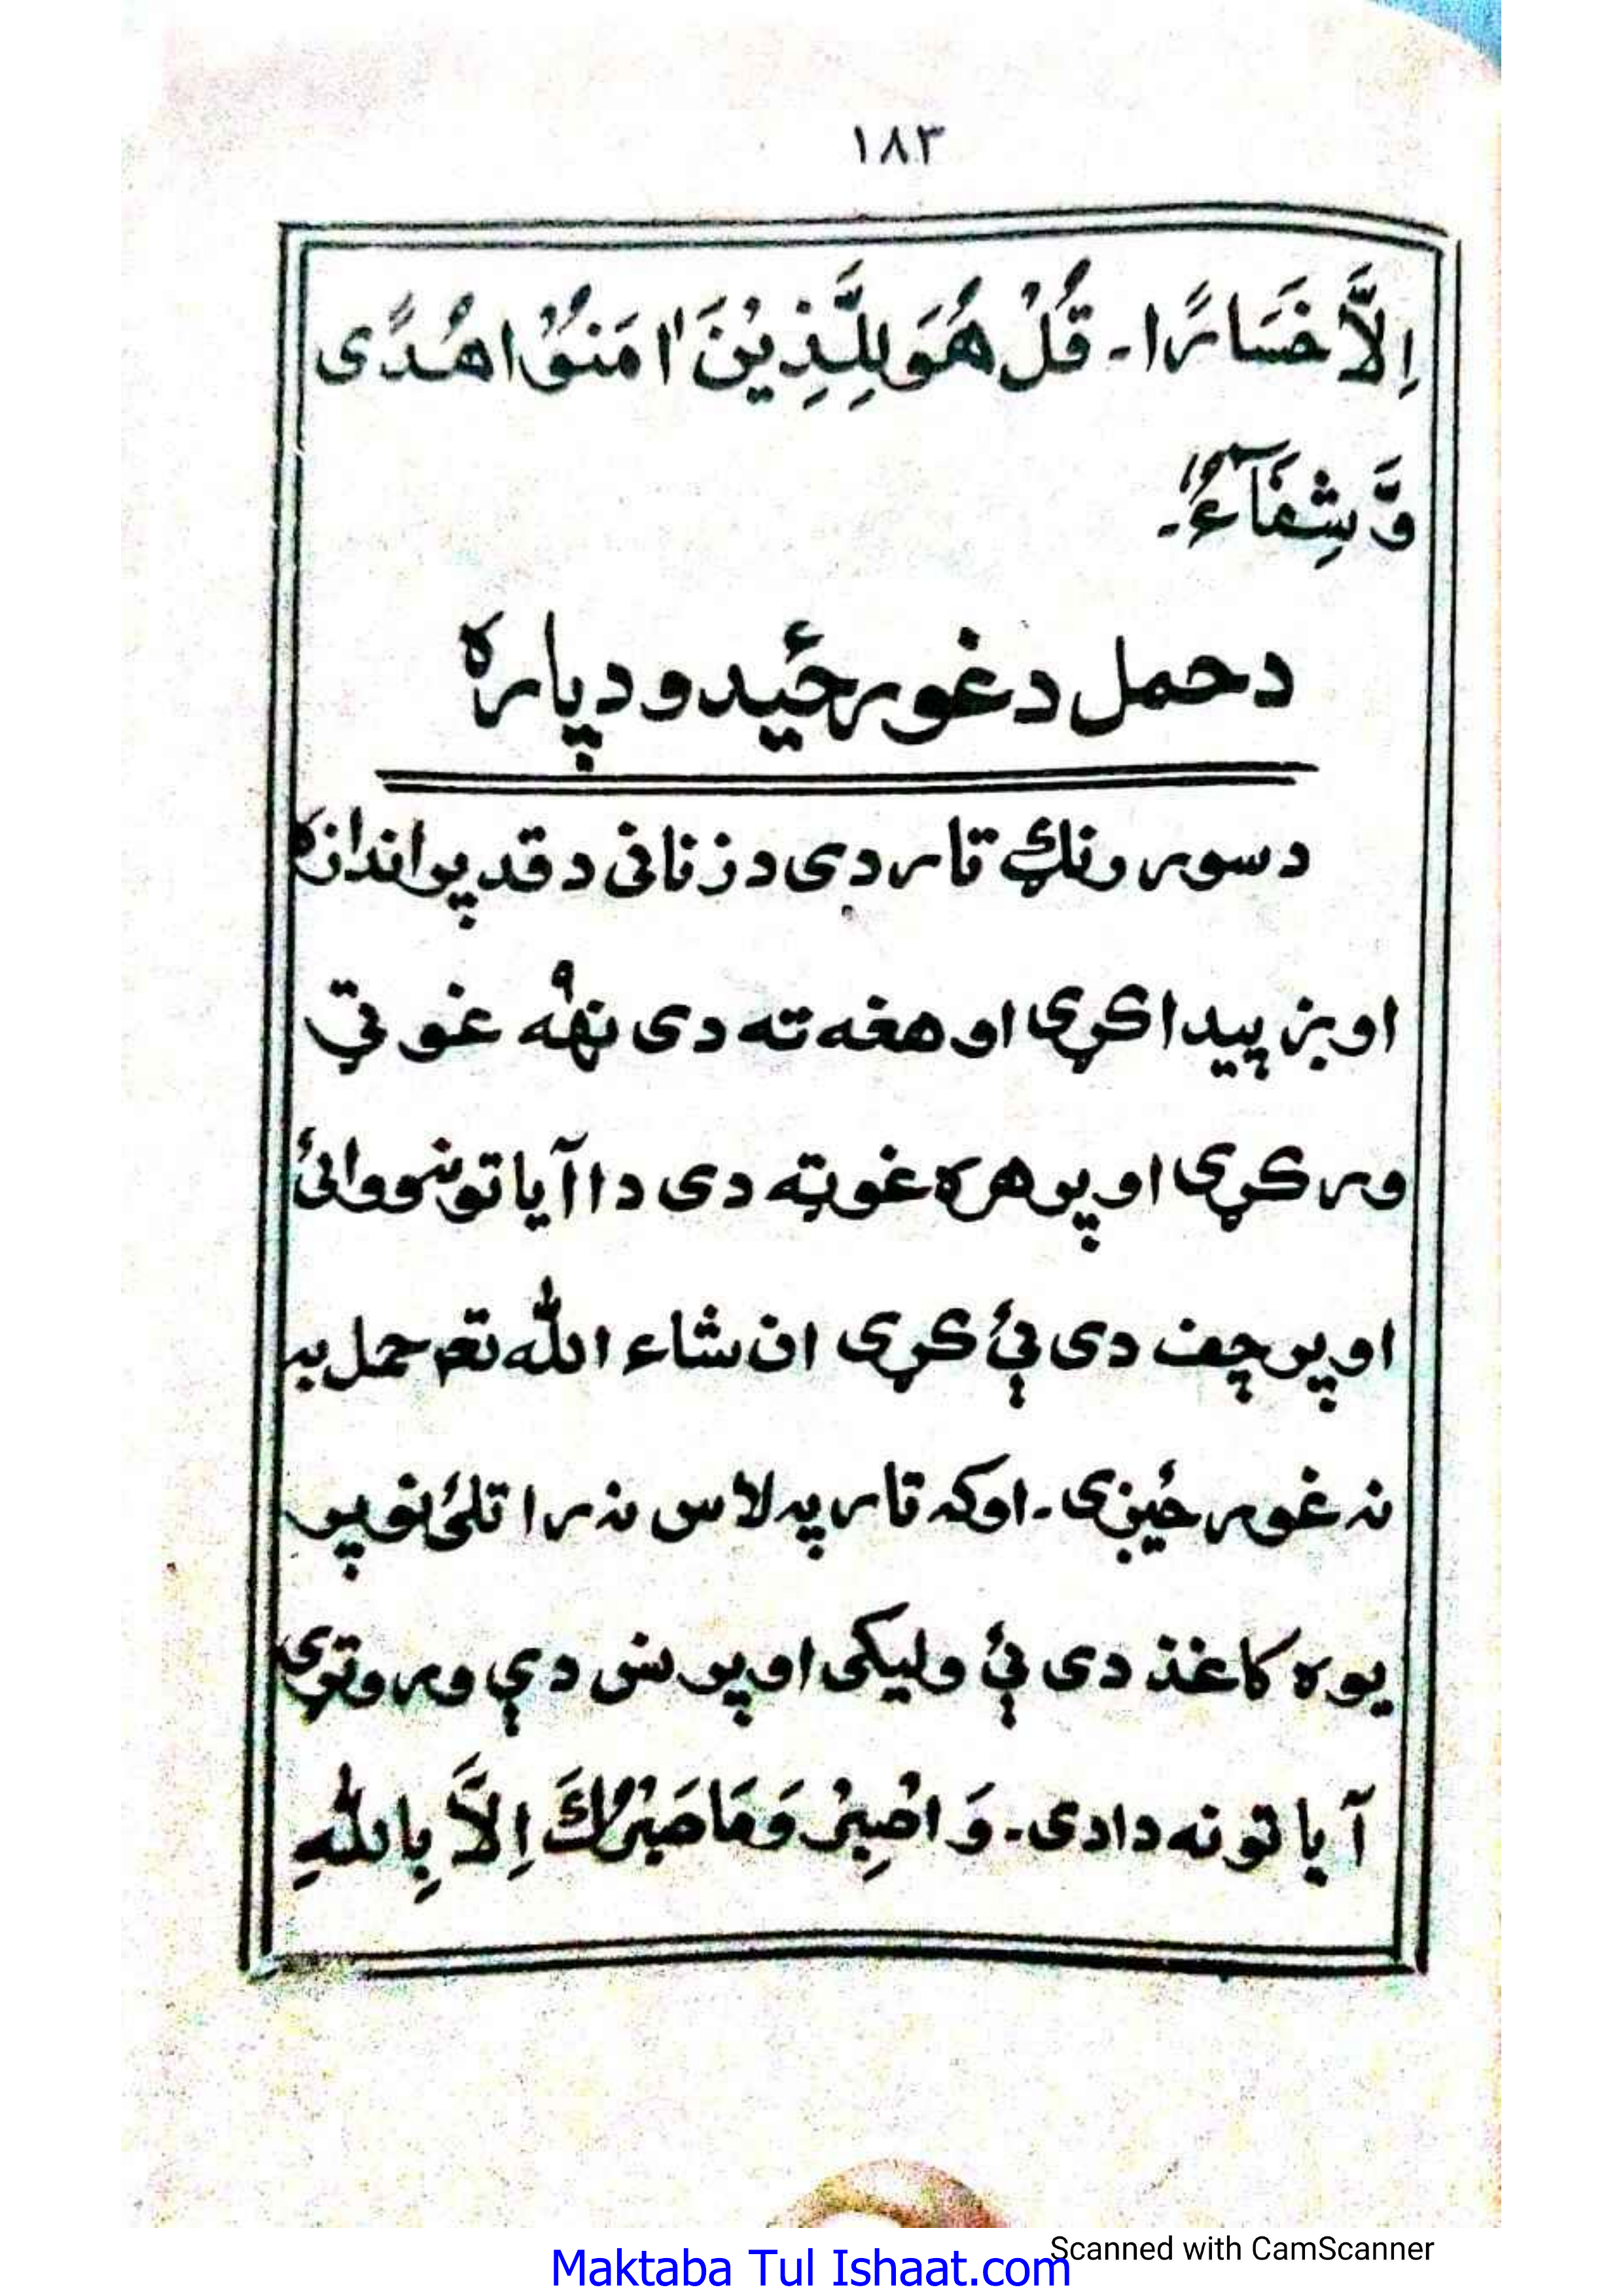 ١٨٣
اِلَّا خَسَارًا۔ قُلْ هُوَ لِلَّذِيْنَ اٰمَنُوْا هُدًى
وَّ شِفَآءٌ۔
د حمل د غورځيدو دپاره
د سور رنګ تار دی د زنانی د قد پر اندازه
اوبز پيدا کړی او هغه ته دی نهه ۹ غوټی
ورکړی او پر هره غوټه دی دا آياتونه ووائی
او پر چف دی ئې کړی ان شاء الله تعم حمل به
نه غورځيږی۔ اوکه تار په لاس نه راتلئ نو پر
يوه کاغذ دی ئې وليکی او پر نس دې وروتړی
آياتونه دادی۔ وَ اصْبِرْ وَمَا صَبْرُكَ اِلَّا بِاللّٰهِ
Scanned with CamScanner
Maktaba Tul Ishaat.com